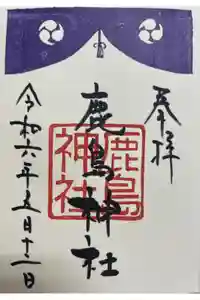 奉拝
鹿島神社
鹿島神社
令和六年五月十二日